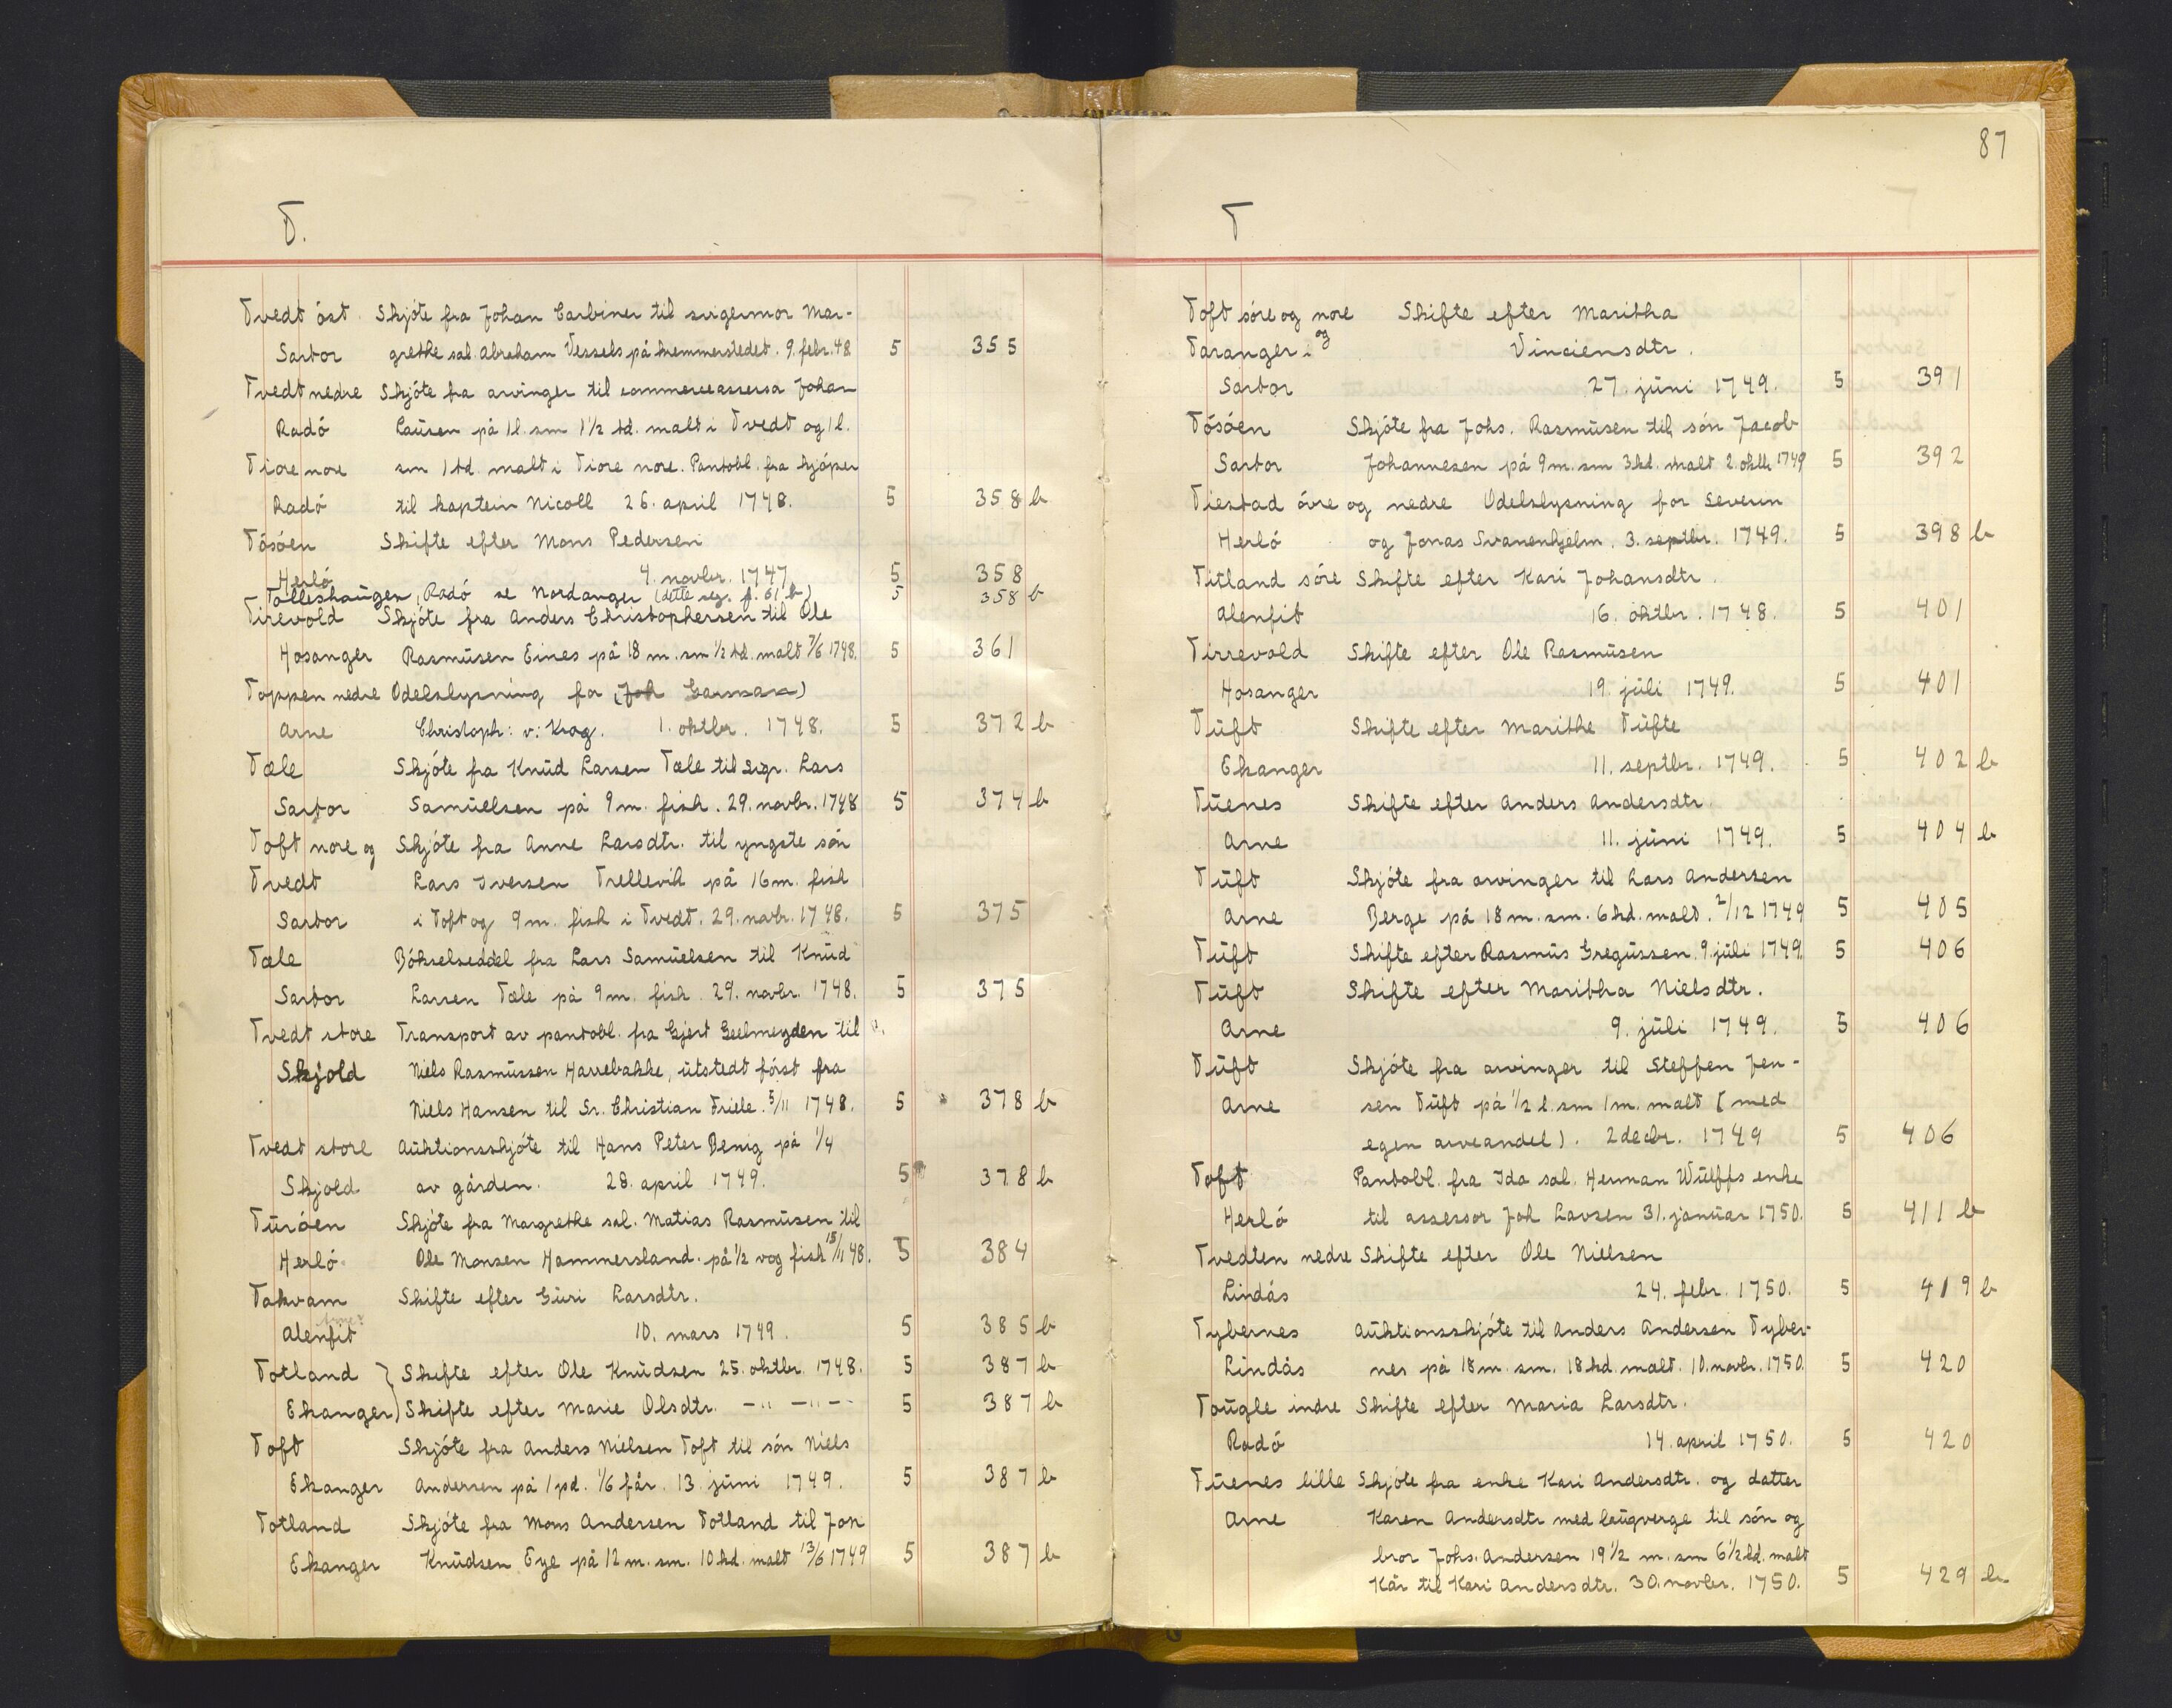 T.
Tvedt øst Skjøte fra Johan Carbiner til svigermor Mar-
Sartor grethe sal. Abraham Vessels på kremmerstedet. 9. febr. 48 5 355
Tvedt nedre Skjøte fra arvinger til commerceassessa Johan
Radø Lausen på 1 l. sm 1 1/2 td. malt i Tvedt og 1 l.
Tiore nore sm 1 td. malt i Tiore nore. Pantobl. fra kjøper
Radø til kaptein Nicoll 26. april 1748. 5 358 b
Tøsøen Skifte efter Mons Pedersen
Herlø 4. novbr. 1747 5 358
Tolleshaugen, Radø se Nordanger (dette reg. f. 61 b) 5 358 b
Tirevold Skjøte fra Anders Christophersen til Ole
Hosanger Rasmusen Eines på 18 m. sm 1/2 td. malt 7/6 1748. 5 361
Toppen nedre Odelslysning for (Joh Garman)
Arne Christoph: v: Krog. 1. oktbr. 1748. 5 372 b
Tæle Skjøte fra Knud Larsen Tæle til Sigr. Lars
Sartor Samuelsen på 9 m. fisk. 29. novbr. 1748 5 374 b
Toft nore og Skjøte fra Anne Larsdtr. til yngste søn
Tvedt Lars Iversen Trellevik på 16 m. fisk
Sartor i Toft og 9 m. fisk i Tvedt. 29. novbr. 1748. 5 375
Tæle Bökselseddel fra Lars Samuelsen til Knud
Sartor Larsen Tæle på 9 m. fisk. 29. novbr. 1748. 5 375
Tvedt store Transport av pantobl. fra Gjert Geelmeyden til
Skjold Niels Rasmussen Harrebakke, utstedt først fra
Niels Hansen til Sr. Christian Friele. 5/11 1748. 5 378 b
Tvedt store Auktionsskjøte til Hans Peter Benig på 1/4
Skjold av gården. 28. april 1749. 5 378 b
Turøen Skjøte fra Margrethe sal. Matias Rasmusen til
Herlø Ole Monsen Hammersland. på 1/2 vog fisk 15/11 48. 5 384
Takvam Skifte efter Guri Larsdtr.
Alenfit 10. mars 1749. 5 385 b
Totland } Skifte efter Ole Knudsen 25. oktbr. 1748. 5 387 b
Ekanger) Skifte efter Marie Olsdtr. —"—"— 5 387 b
Toft Skjøte fra Anders Nielsen Toft til søn Niels
Ekanger Andersen på 1 pd. 1/6 får. 13. juni 1749. 5 387 b
Totland Skjøte fra Mons Andersen Totland til Jon
Ekanger Knudsen Eye på 12 m. sm. 10 kd. malt 13/6 1749 5 387 b
87
T
Toft søre og nore Skifte efter Maritha
Taranger i og Vinciensdtr.
Sartor 27. juni 1749. 5 391
Tøsøen Skjøte fra Johs. Rasmusen til søn Jacob
Sartor Johannesen på 9 m. sm 3 kd. malt 2. oktbr 1749 5 392
Tiestad øvre og nedre Odelslysning for Severin
Herlø og Jonas Svanenhjelm. 3. septbr. 1749. 5 398 b
Titland søre Skifte efter Kari Johansdtr.
Alenfit 16. oktbr. 1748. 5 401
Tirrevold Skifte efter Ole Rasmusen
Hosanger 19. juli 1749. 5 401
Tuft Skifte efter Marithe Tufte
Ekanger 11. septbr. 1749. 5 402 b
Tuenes Skifte efter Anders Andersdtr.
Arne 11. juni 1749. 5 404 b
Tuft Skjøte fra arvinger til Lars Andersen
Arne Berge på 18 m. sm. 6 kd. malt. 2/12 1749 5 405
Tuft Skifte efter Rasmus Gregussen. 9. juli 1749. 5 406
Tuft Skifte efter Maritha Nielsdtr.
Arne 9. juli 1749. 5 406
Tuft Skjøte fra arvinger til Steffen Jen-
Arne sen Tuft på 1/2 l. sm 1 m. malt (med
egen arveandel). 2 decbr. 1749 5 406
Toft Pantobl. fra Ida sal. Herman Wulffs enke
Herlø til assessor Joh Lavsen 31. januar 1750. 5 411 b
Tvedten nedre Skifte efter Ole Nielsen
Lindås 24. febr. 1750. 5 419 b
Tybernes Auktionsskjøte til Anders Andersen Tyber-
Lindås nes på 18 m. sm. 18 kd. malt. 10. novbr. 1750. 5 420
Tougle indre Skifte efter Maria Larsdtr.
Radø 14. april 1750. 5 420
Tuenes lille Skjøte fra enke Kari Andersdtr. og datter
Arne Karen Andersdtr med laugverge til søn og
bror Johs. Andersen 19 1/2 m. sm 6 1/2 kd. malt
Kår til Kari Andersdtr. 30. novbr. 1750. 5 429 b